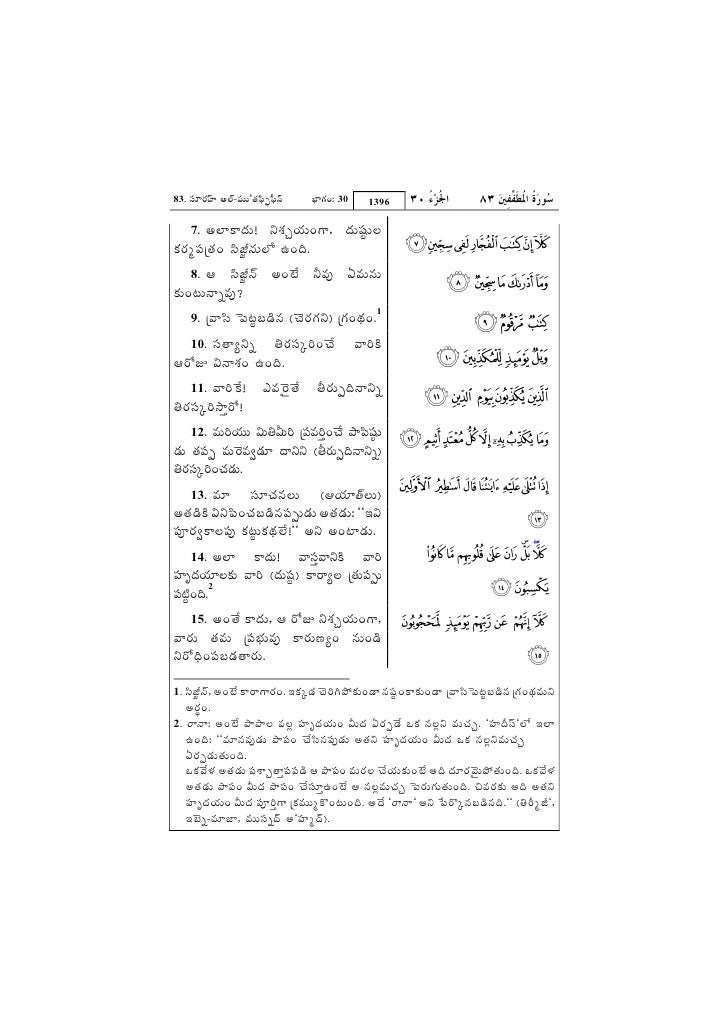 83. సూరహ్ అల్-ము'తఫ్ఫిఫీన్ భాగం: 30 1396 الجزء ٣٠ سورة المطففين ٨٣
7. అలాకాదు! నిశ్చయంగా, దుష్టుల
కర్మపత్రం సిజ్జీనులో ఉంది.
8. ఆ సిజ్జీన్ అంటే నీవు ఏమను
కుంటున్నావు?
9. వ్రాసి పెట్టబడిన (చెరగని) గ్రంథం.1
10. సత్యాన్ని తిరస్కరించే వారికి
ఆరోజు వినాశం ఉంది.
11. వారికే! ఎవరైతే తీర్పుదినాన్ని
తిరస్కరిస్తారో!
12. మరియు మితిమీరి ప్రవర్తించే పాపిష్ఠు
డు తప్ప మరెవ్వడూ దానిని (తీర్పుదినాన్ని)
తిరస్కరించడు.
13. మా సూచనలు (ఆయాత్‌లు)
అతడికి వినిపించబడినప్పుడు అతడు: ‘‘ఇవి
పూర్వకాలపు కట్టుకథలే!‘‘ అని అంటాడు.
14. అలా కాదు! వాస్తవానికి వారి
హృదయాలకు వారి (దుష్ట) కార్యాల త్రుప్పు
పట్టింది.2
15. అంతే కాదు, ఆ రోజు నిశ్చయంగా,
వారు తమ ప్రభువు కారుణ్యం నుండి
నిరోధింపబడతారు.
كَلَّآ إِنَّ كِتَٰبَ ٱلۡفُجَّارِ لَفِى سِجِّينٖ ٧
وَمَآ أَدۡرَىٰكَ مَا سِجِّينٞ ٨
كِتَٰبٞ مَّرۡقُومٞ ٩
وَيۡلٞ يَوۡمَئِذٖ لِّلۡمُكَذِّبِينَ ١٠
ٱلَّذِينَ يُكَذِّبُونَ بِيَوۡمِ ٱلدِّينِ ١١
وَمَا يُكَذِّبُ بِهِۦٓ إِلَّا كُلُّ مُعۡتَدٍ أَثِيمٍ ١٢
إِذَا تُتۡلَىٰ عَلَيۡهِ ءَايَٰتُنَا قَالَ أَسَٰطِيرُ ٱلۡأَوَّلِينَ
١٣
كَلَّاۖ بَلۡۜ رَانَ عَلَىٰ قُلُوبِهِم مَّا كَانُواْ
يَكۡسِبُونَ ١٤
كَلَّآ إِنَّهُمۡ عَن رَّبِّهِمۡ يَوۡمَئِذٖ لَّمَحۡجُوبُونَ
١٥
1. సిజ్జీన్, అంటే కారాగారం. ఇక్కడ చెరిగిపోకుండా నష్టంకాకుండా వ్రాసిపెట్టబడిన గ్రంథమని
అర్థం.
2. రానా: అంటే పాపాల వల్ల హృదయం మీద ఏర్పడే ఒక నల్లని మచ్చ. 'హదీస్'లో ఇలా
ఉంది: ‘‘మానవుడు పాపం చేసినపుడు అతని హృదయం మీద ఒక నల్లనిమచ్చ
ఏర్పడుతుంది.
ఒకవేళ అతడు పశ్చాత్తాపపడి ఆ పాపం మరల చేయకుంటే అది దూరమైపోతుంది. ఒకవేళ
అతడు పాపం మీద పాపం చేస్తూఉంటే ఆ నల్లమచ్చ పెరుగుతుంది. చివరకు అది అతని
హృదయం మీద పూర్తిగా క్రమ్ముకొంటుంది. అదే 'రానా' అని పేర్కొనబడినది.‘‘ (తిర్మీజీ',
ఇబ్నె-మాజా, ముస్నద్ అ'హ్మద్).